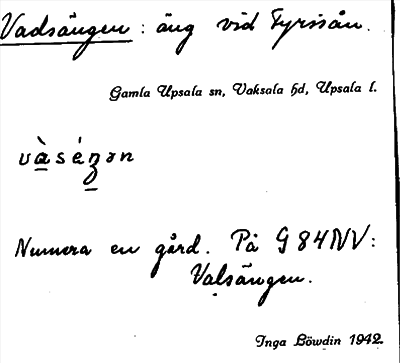 Vadsängen: äng vid Fyrisån.
Gamla Upsala sn, Vaksala hd, Upsala l.
Numera en gård. På G 84 NV:
Valsängen.
Inga Löwdin 1942.